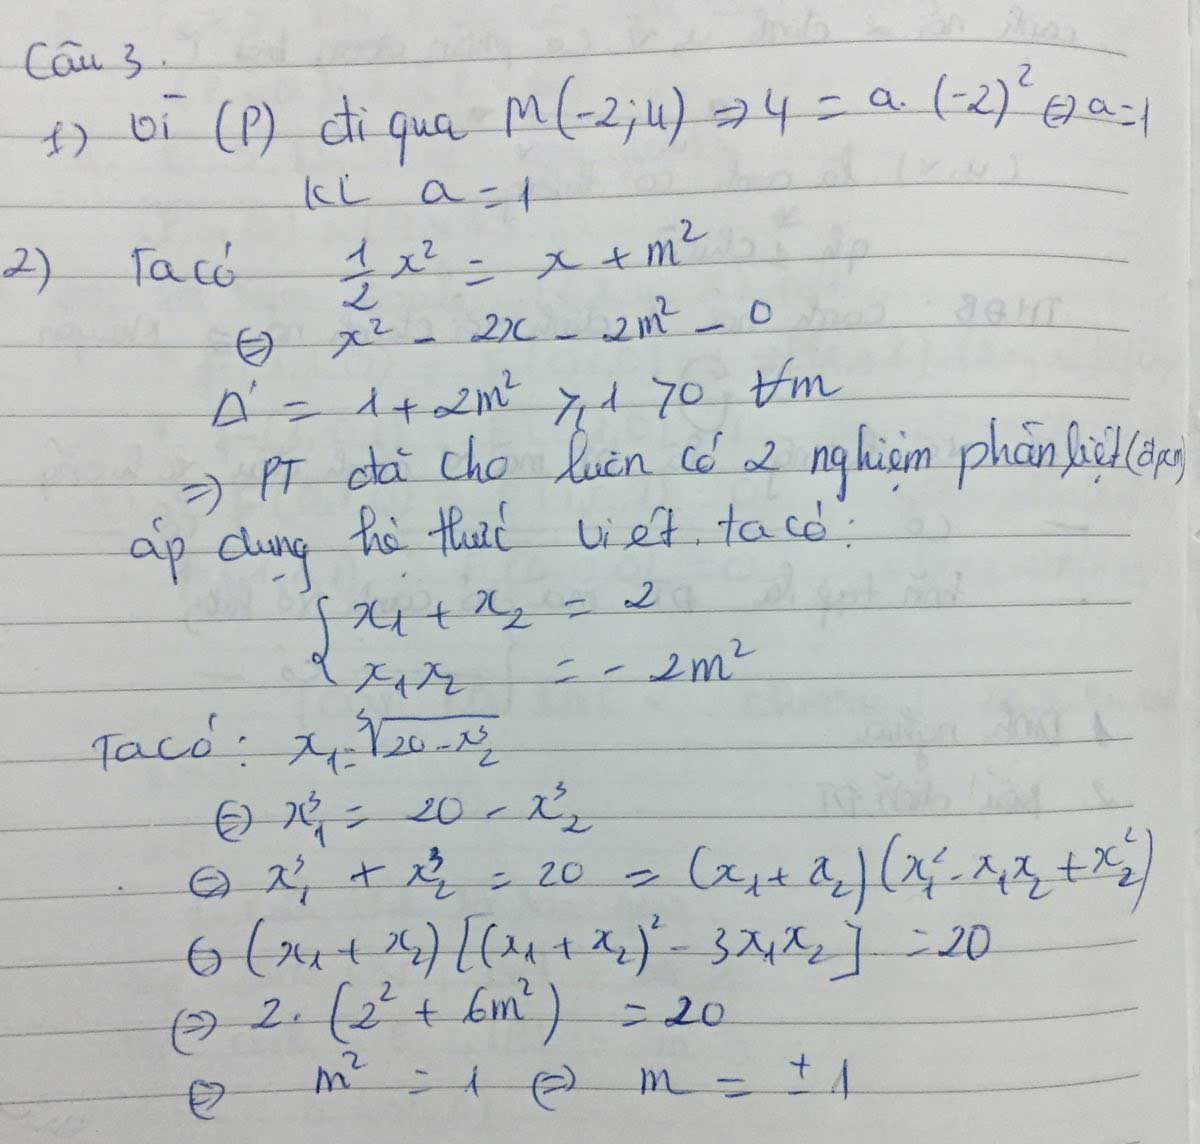 Câu 3.
1) Vì (P) đi qua M(-2;4) ⇒ 4 = a. (-2)² ⇔ a=1
KL a = 1
2) Ta có 1/2 x² = x + m²
⇔ x² - 2x - 2m² - 0
Δ' = 1 + 2m² ⩾ 1 > 0 ∀m
⇒ PT đã cho luôn có 2 nghiệm phân biệt (đpcm)
áp dụng hệ thức Viét. ta có:
{ x₁ + x₂ = 2
x₁x₂ = - 2m²
Ta có: x₁ = ∛(20 - x₂³)
⇔ x₁³ = 20 - x₂³
⇔ x₁³ + x₂³ = 20 = (x₁ + x₂)(x₁² - x₁x₂ + x₂²)
⇔ (x₁ + x₂)[(x₁ + x₂)² - 3x₁x₂] = 20
⇔ 2. (2² + 6m²) = 20
⇔ m² = 1 ⇔ m = ± 1